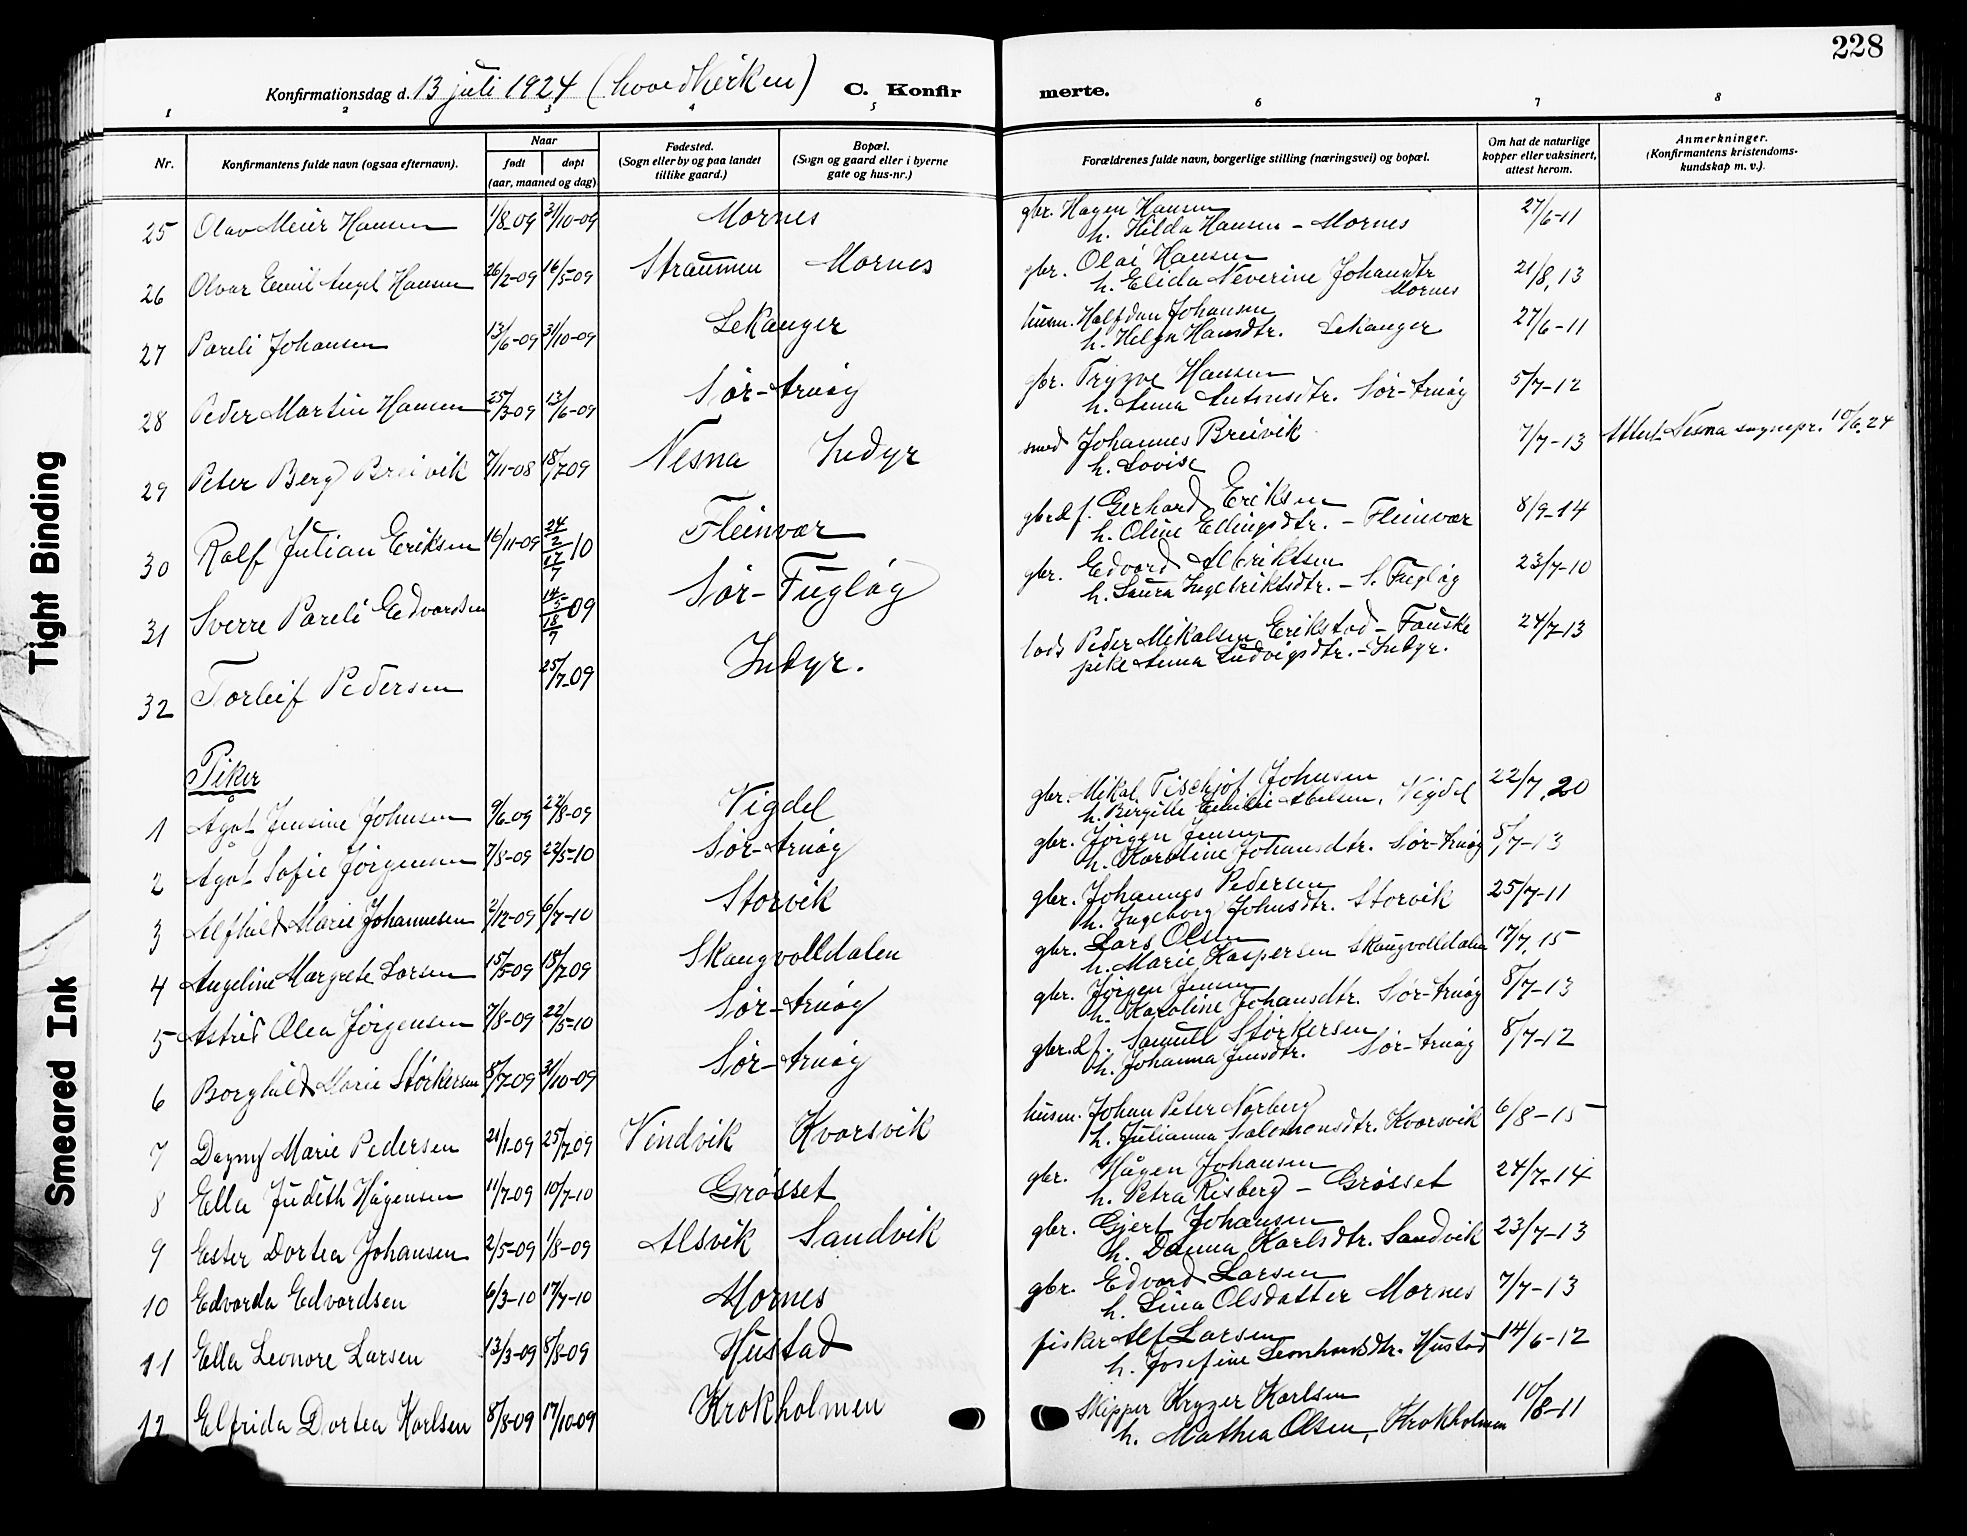 228
Konfirmationsdag d. 13 juli 1924 (hovedkirken) C. Konfirmerte.
1 2 3 4 5 6 7 8
Nr.
Konfirmantens fulde navn (ogsaa efternavn).
Naar
født
døpt
(aar, maaned og dag)
Fødested.
(Sogn eller by og paa landet
tillike gaard.)
Bopæl.
(Sogn og gaard eller i byerne
gate og hus-nr.)
Forældrenes fulde navn, borgerlige stilling (næringsvei) og bopæl.
Om hat de naturlige
kopper eller vaksinert,
attest herom.
Anmerkninger.
(Konfirmantens kristendoms-
kundskap m. v.).
25 Olav Meier Hansen 1/8-09 31/10-09 Mornes gbr. Hagen Hansen 27/6-11
h. Hilda Hansen - Mornes
26 Olvar Emil Angel Hansen 26/2-09 16/5-09 Straumen Mornes gbr. Olai Hansen 21/8,13
h. Elida Neverine Johansdtr
Mornes
27 Pareli Johansen 13/6-09 31/10-09 Lekanger husm. Halfdan Johansen 27/6-11
h. Helga Hansdtr. Lekanger
28 Peder Martin Hansen 25/3-09 13/6-09 Sør-Arnøy gbr. Trygve Hansen 5/7-12
h. Anna Antonsdtr. Sør-Arnøy
29 Peter Berg Breivik 7/11-08 18/7-09 Nesna Indyr smed Johannes Breivik 7/7-13 Attest Nesna sognepr. 10/6.24
h. Lovise
30 Ralf Julian Eriksen 16/11-09 24/2 17/7 10 Fleinvær gbr & f. Gerhard Eriksen 8/9-14
h. Oline Ellingsdtr. - Fleinvær
31 Sverre Pareli Edvardsen 14/5 18/7 09 Sør-Fugløy gbr. Edvard Albriktsen 23/7-10
h. Laura Ingebriktsdtr. - S. Fugløy
32 Torleif Pedersen 25/7-09 Indyr. lods Peder Mikalsen Erikstad - Fauske 24/7-13
pike Anna Ludvigsdtr. - Indyr.
Piker
1 Ågot Jensine Johnsen 9/6-09 22/8-09 Vigdel gbr. Mikal Fischjof Johnsen 22/7,20
h. Birgitte Emilie Abelsen, Vigdel
2 Ågot Sofie Jørgensen 7/8-09 22/5-10 Sør-Arnøy gbr. Jørgen Jensen 8/7-13
h. Karoline Johansdtr. Sør-Arnøy
3 Alfhild Marie Johannesen 2/12-09 6/7-10 Storvik gbr. Johannes Pedersen 25/7-11
h. Ingeborg Johnsdtr. Storvik
4 Angeline Margrete Larsen 15/5-09 18/7-09 Skaugvolldalen gbr. Lars Olsen 17/7,15
h. Marie Kaspersen Skaugvolldalen
5 Astrid Olea Jørgensen 7/8-09 22/5-10 Sør-Arnøy gbr. Jørgen Jensen 8/7-13
h. Karoline Johansdtr. Sør-Arnøy
6 Borghild Marie Størkersen 8/7-09 31/10-09 Sør-Arnøy gbr. & f. Samuel Størkersen 8/7-12
h. Johanna Jensdtr. Sør-Arnøy
7 Dagny Marie Pedersen 21/1-09 25/7-09 Vindvik Kvarsvik husm. Johan Peter Norberg 6/8-15
h. Julianna Salomonsdtr. Kvarsvik
8 Ella Judith Hågensen 11/7-09 10/7-10 Grøsset gbr. Hågen Johansen 24/7-14
h. Petra Risberg - Grøsset
9 Ester Dortea Johansen 2/5-09 1/8-09 Alsvik Sandvik gbr. Gjert Johansen 23/7-13
h. Danna Karlsdtr. Sandvik
10 Edvarda Edvardsen 6/3-10 17/7-10 Mornes gbr. Edvard Larsen 7/7-13
h. Lina Olsdatter Mornes
11 Ella Leonore Larsen 13/3-09 8/8-09 Hustad fisker Alf Larsen 14/6-12
h. Josefine Leonhardsdtr. Hustad
12 Elfrida Dortea Karlsen 8/8-09 17/10-09 Krokholmen Skipper Kryger Karlsen 10/8-11
h. Mathea Olsen, Krokholmen
Tight Binding
Smeared Ink